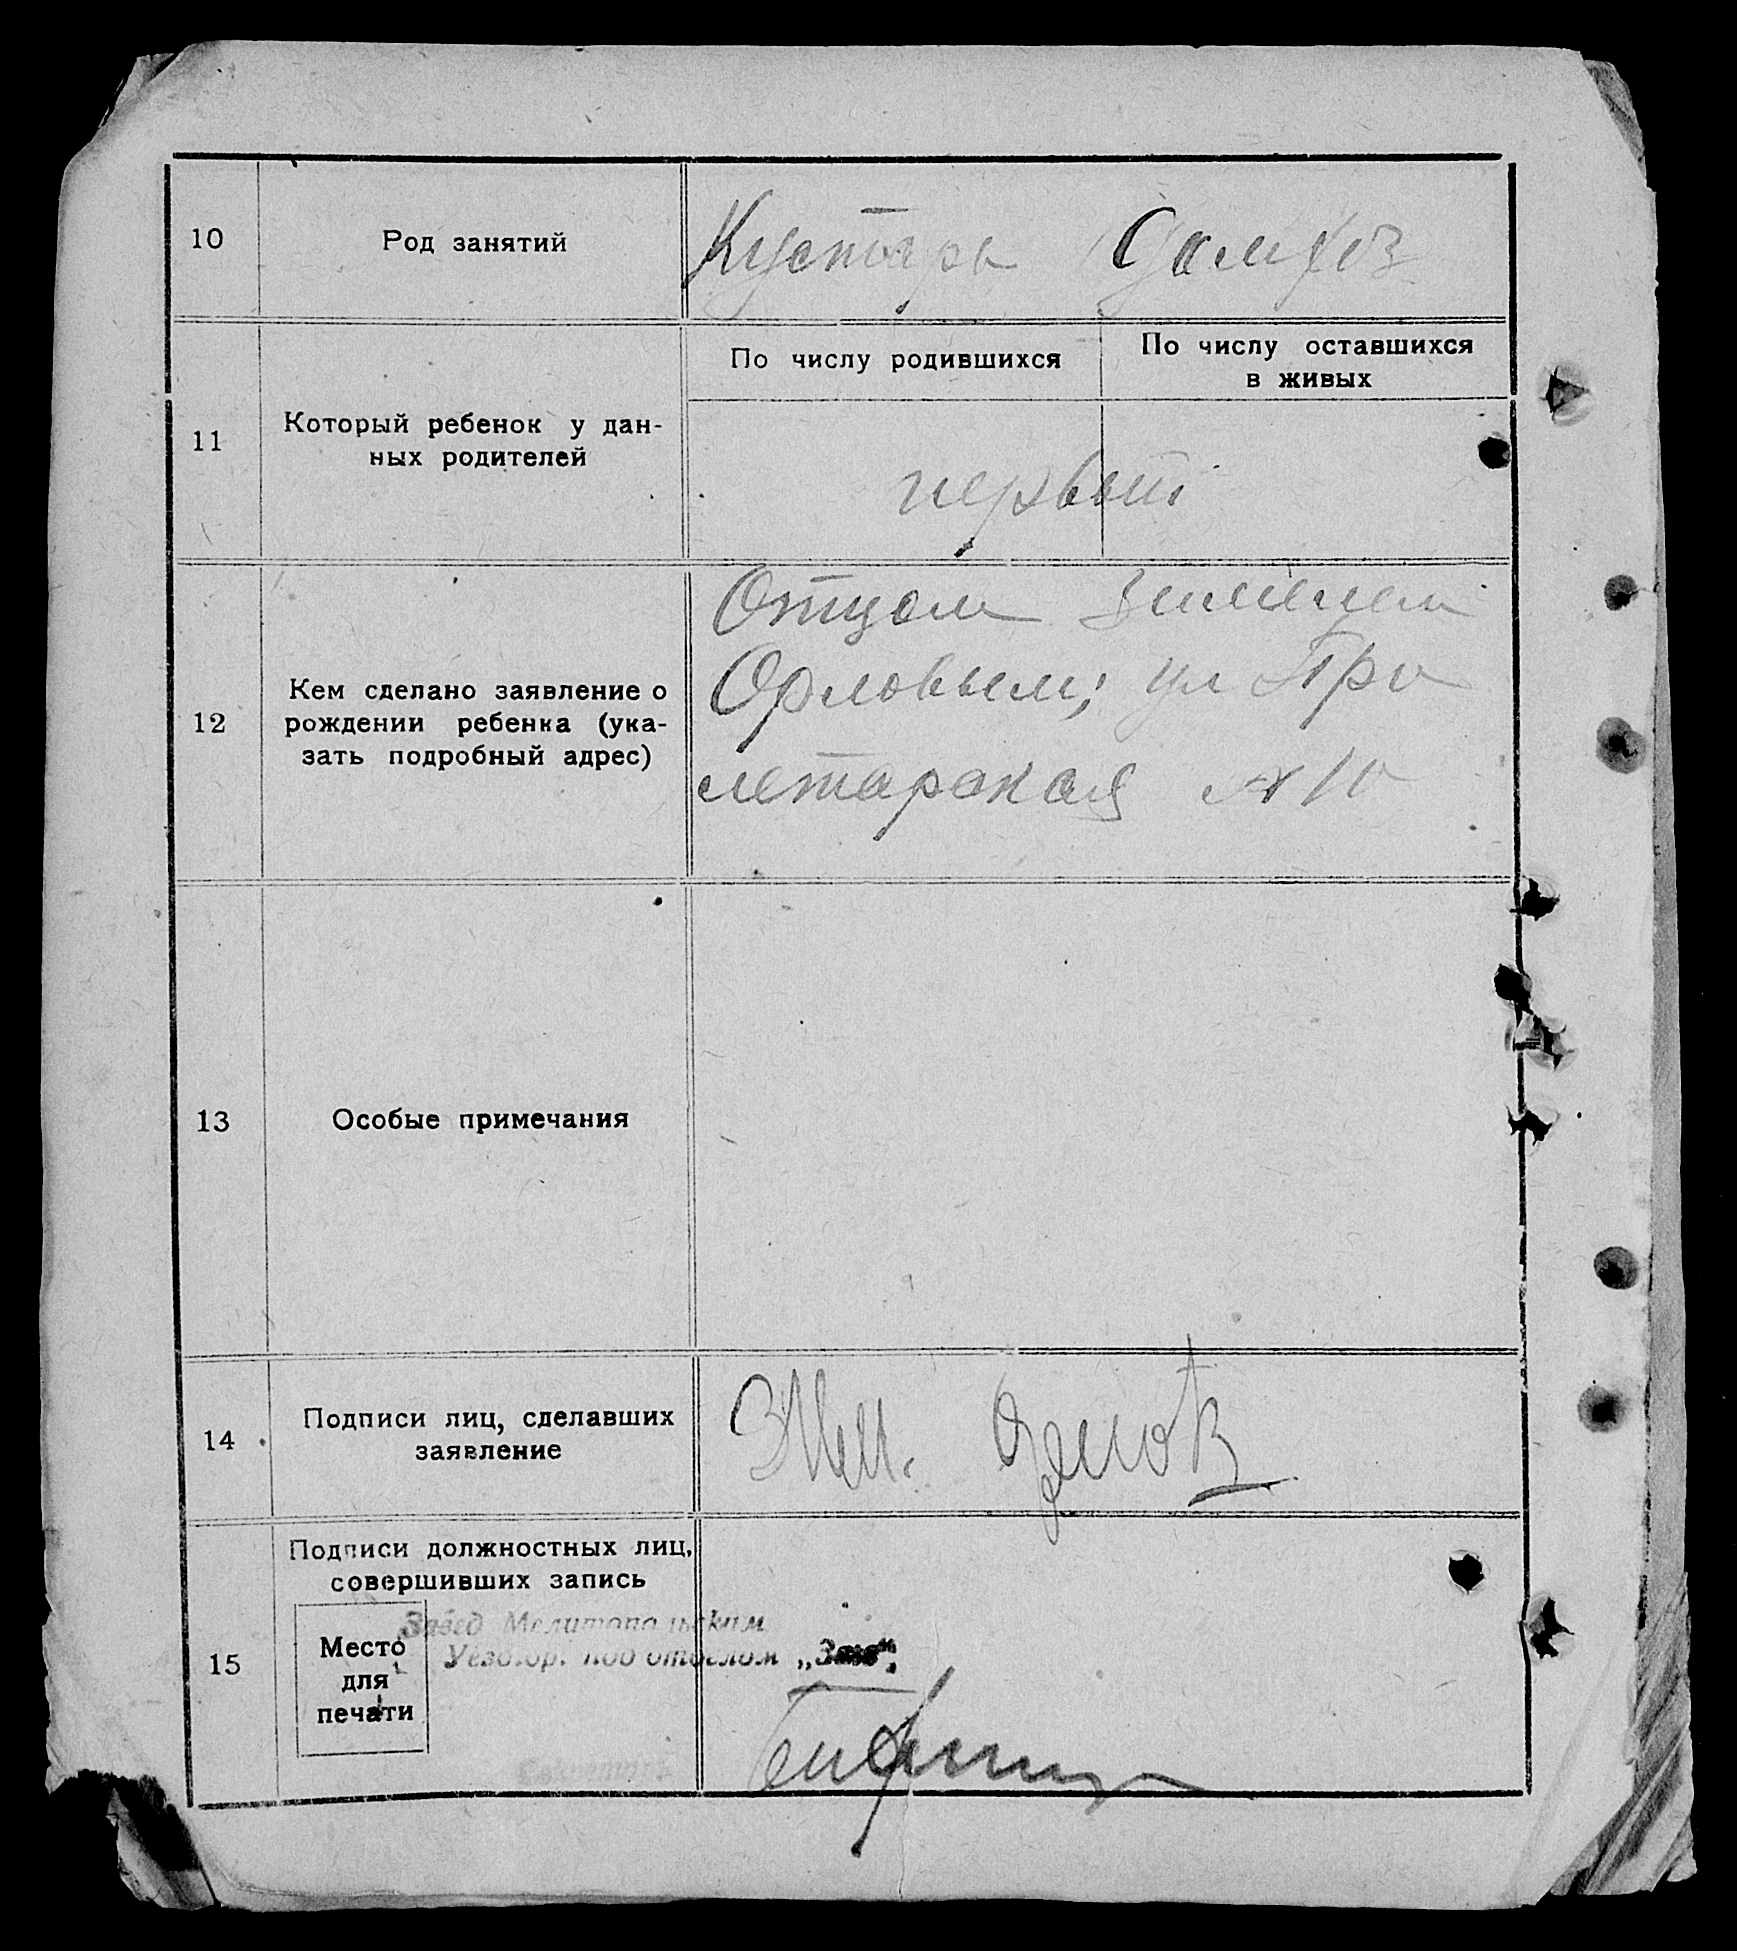 10
Род занятий
Кустарь Домхоз
11
Который ребенок у дан-
ных родителей
По числу родившихся
По числу оставшихся
в живых
первый
12
Кем сделано заявление о
рождении ребенка (ука-
зать подробный адрес)
Отцом
Орловым; ул Про
летарская № 10
13
Особые примечания
14
Подписи лиц, сделавших
заявление
15
Подписи должностных лиц,
совершивших запись
Место
для
печати
Завед Мелитопольским
под отделом „Загс".
Секретарь